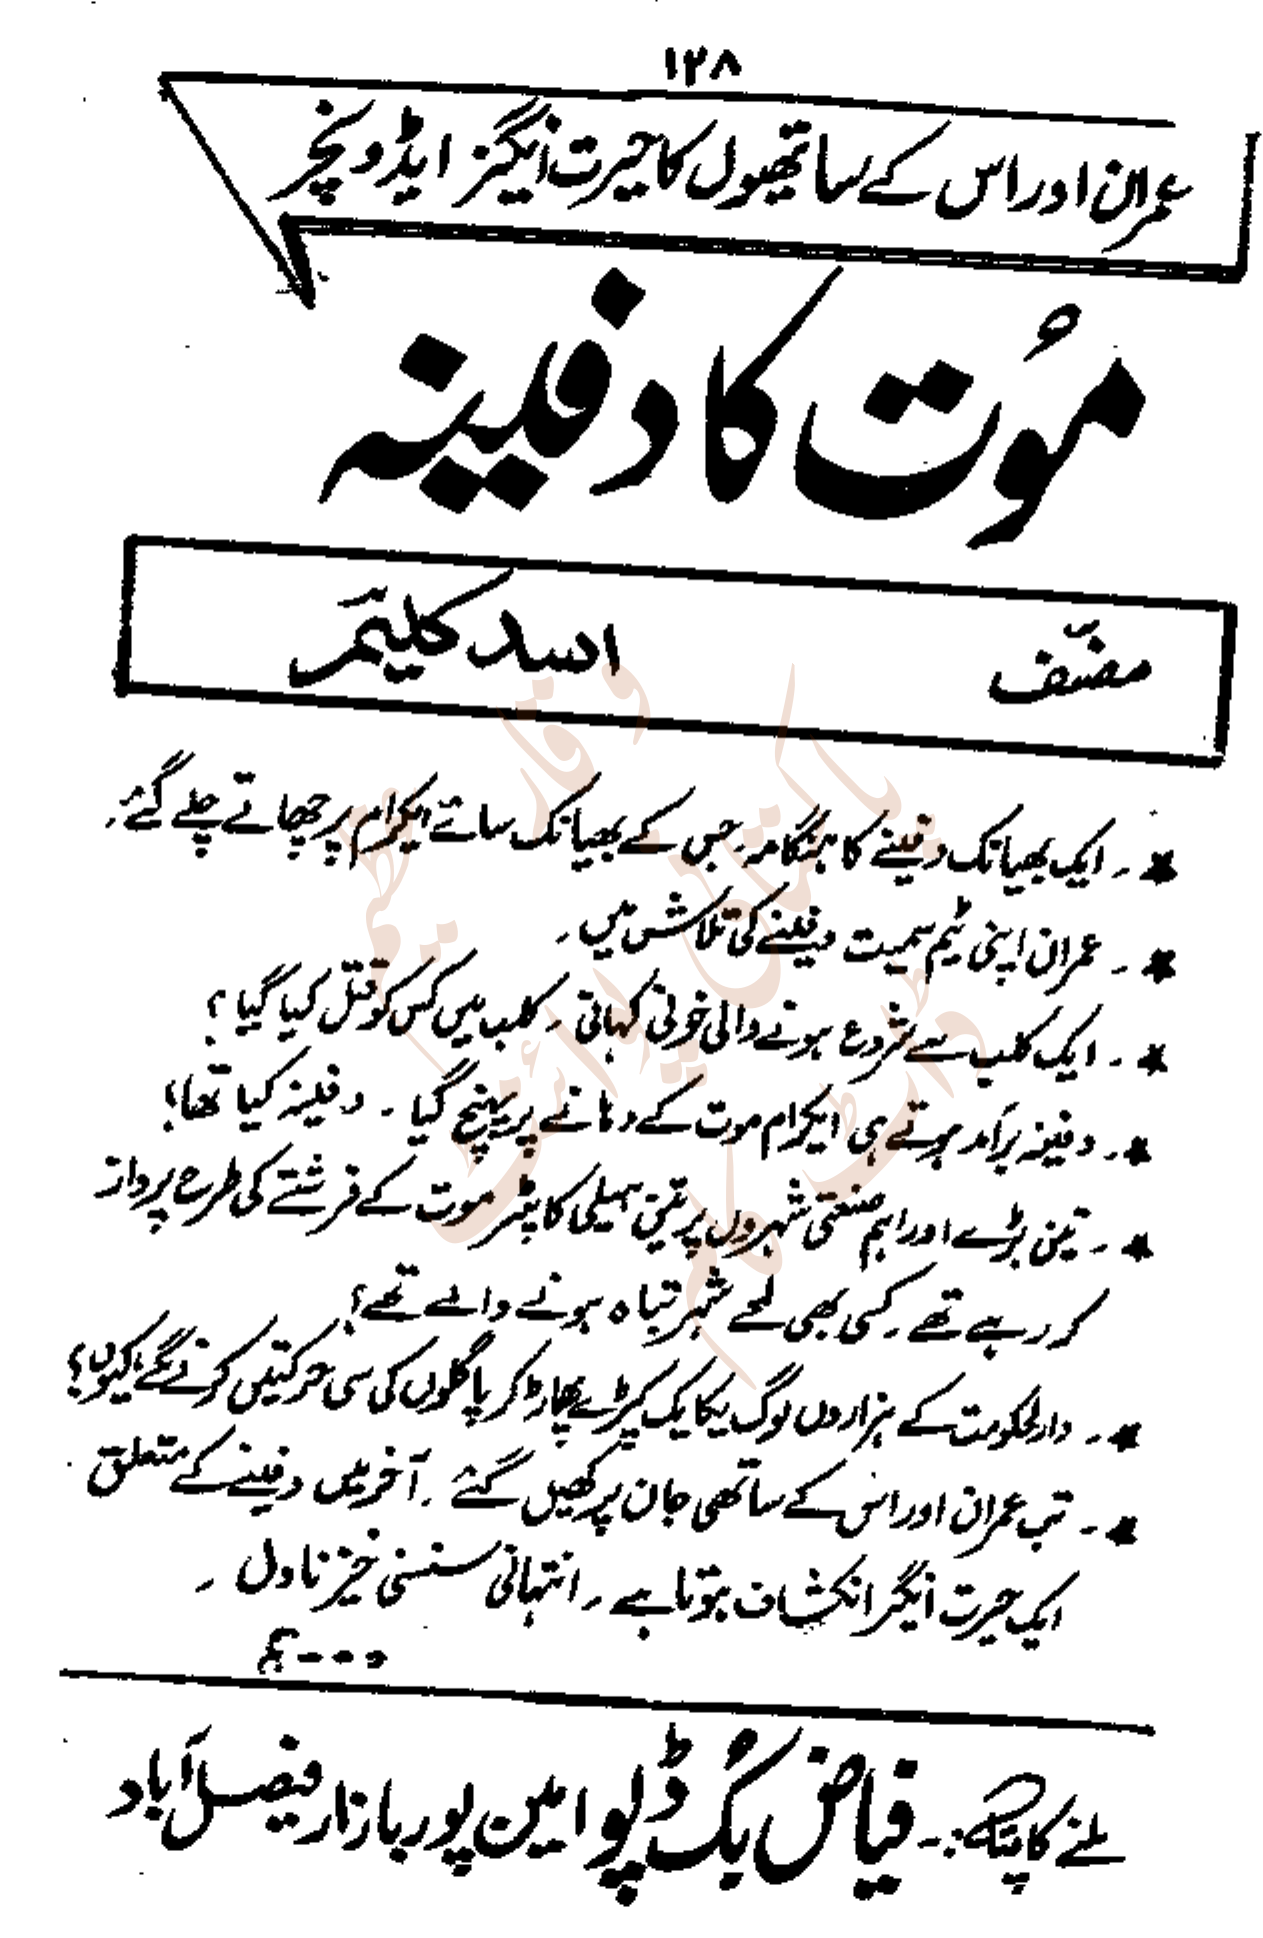 ۱۳۸
عمران اور اس کے ساتھیوں کا حیرت انگیز ایڈونچر
موُت کا دفینہ
مصنّف اسد کلیَمر
★ ۔ ایک بھیانک دفینے کا ہنگامہ۔ جس کے بھیانک سائے ایکرام پر چھاتے چلے گئے۔
★ ۔ عمران اپنی ٹیم سمیت دفینے کی تلاش میں ۔
★ ۔ ایک کلب سے شروع ہونے والی خونی کہانی ۔ کلب میں کس کو قتل کیا گیا؟
★ ۔ دفینہ برآمد ہوتے ہی ایکرام موت کے دہانے پر پہنچ گیا ۔ دفینہ کیا تھا؟
★ ۔ تین بڑے اور اہم صنعتی شہروں پر تین ہیلی کاپٹر موت کے فرشتے کی طرح پرواز
کر رہے تھے ۔ کسی بھی لمحے شہر تباہ ہونے والے تھے؟
★ ۔ دارلحکومت کے ہزاروں لوگ یکایک کپڑے پھاڑ کر پاگلوں کی سی حرکتیں کرنے لگے، کیوں؟
★ ۔ تب عمران اور اس کے ساتھی جان پر کھیل گئے ۔ آخر میں دفینے کے متعلق
ایک حیرت انگیز انکشاف ہوتا ہے ۔ انتہائی سنسنی خیز ناول ۔
ملنے کا پتہ :۔ فیاض بُک ڈپو امین پور بازار فیصل آباد
پاکستان ورچوئل